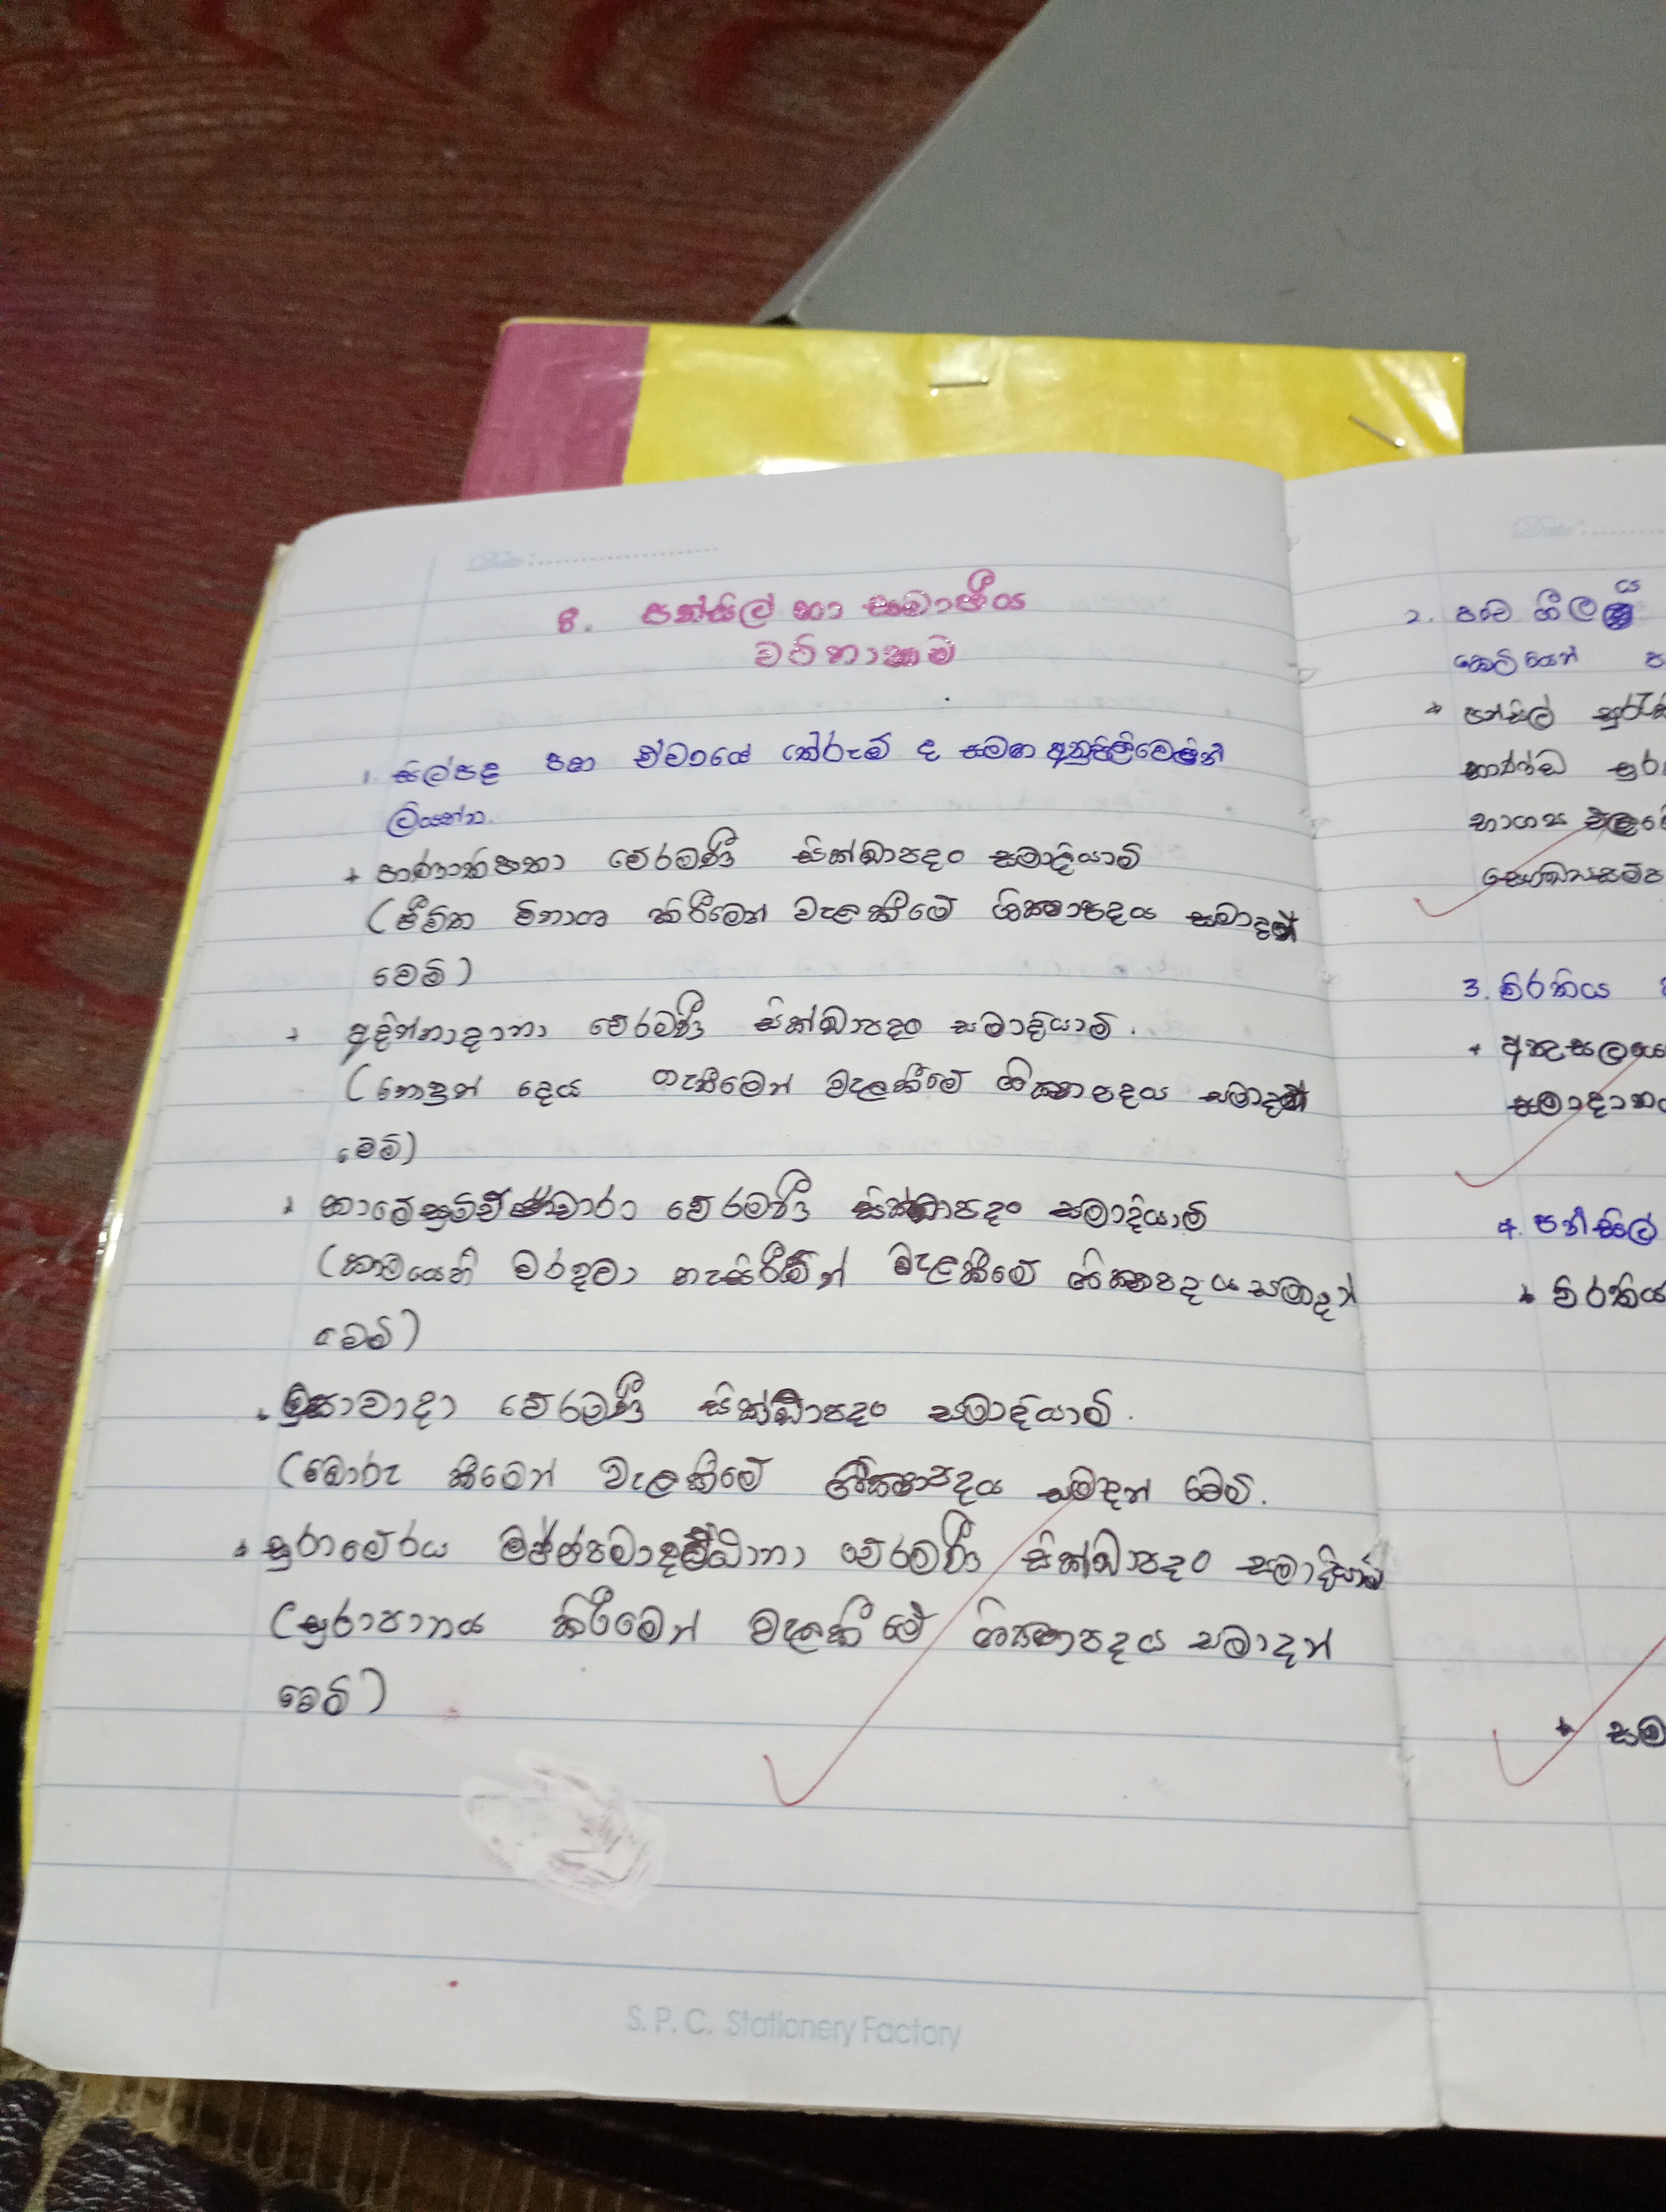 Date :
8. පන්සිල් හා සමාජීය
වටිනාකම
1. සිල්පද පහ ඒවායේ තේරුම් ද සමඟ අනුපිළිවෙළින්
ලියන්න.
පාණාතිපාතා වේරමණී සික්ඛාපදං සමාදියාමි
(ජීවිත විනාශ කිරීමෙන් වැළකීමේ ශික්ෂාපදය සමාදන්
වෙමි)
අදින්නාදානා වේරමණී සික්ඛාපදං සමාදියාමි.
(නොදුන් දෙය ගැනීමෙන් වැලකීමේ ශික්ෂාපදය සමාදන්
වෙමි)
කාමේසුමිච්ඡාචාරා වේරමණී සික්ඛාපදං සමාදියාමි
(කාමයෙහි වරදවා හැසිරීමෙන් වැළකීමේ ශික්ෂාපදය සමාදන්
වෙමි)
මුසාවාදා වේරමණී සික්ඛාපදං සමාදියාමි.
(බොරු කීමෙන් වැලකීමේ ශික්ෂාපදය සමදන් වෙමි.
සුරාමේරය මජ්ජපමාදට්ඨානා වේරමණී සික්ඛාපදං සමාදියාමි
(සුරාපානය කිරීමෙන් වැලකීමේ ශික්ෂාපදය සමාදන්
වෙමි)
S. P. C. Stationery Factory
Date :
2. පංච ශීලය
කෙටියෙන්
පන්සිල්
භාණ්ඩ
භාග්‍ය
3. විරතිය
අකුසලයෙ
සමාදාන
4. පන්සිල්
විරතිය
සම